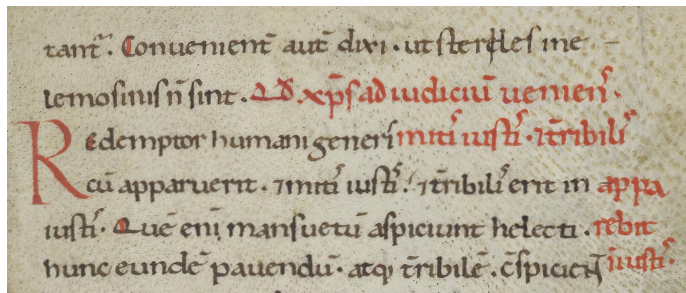 tant᷑. Conuenient̄ aut̄ dixi. ut steriles in e
lemosinis n̄ sint. Qđ xp̄s ad iudiciū ueniens.
Redemptor humani generis mitis iustis. ⁊ t̄ribilis
cū apparuerit. ⁊ mitis iustis. ⁊ t̄ribilis erit in appa
iustis. Quē eni mansuetū aspiciunt helecti. rebit
hunc eundē pauendū. atq; t̄ribilē. c̄spicient iniustis.